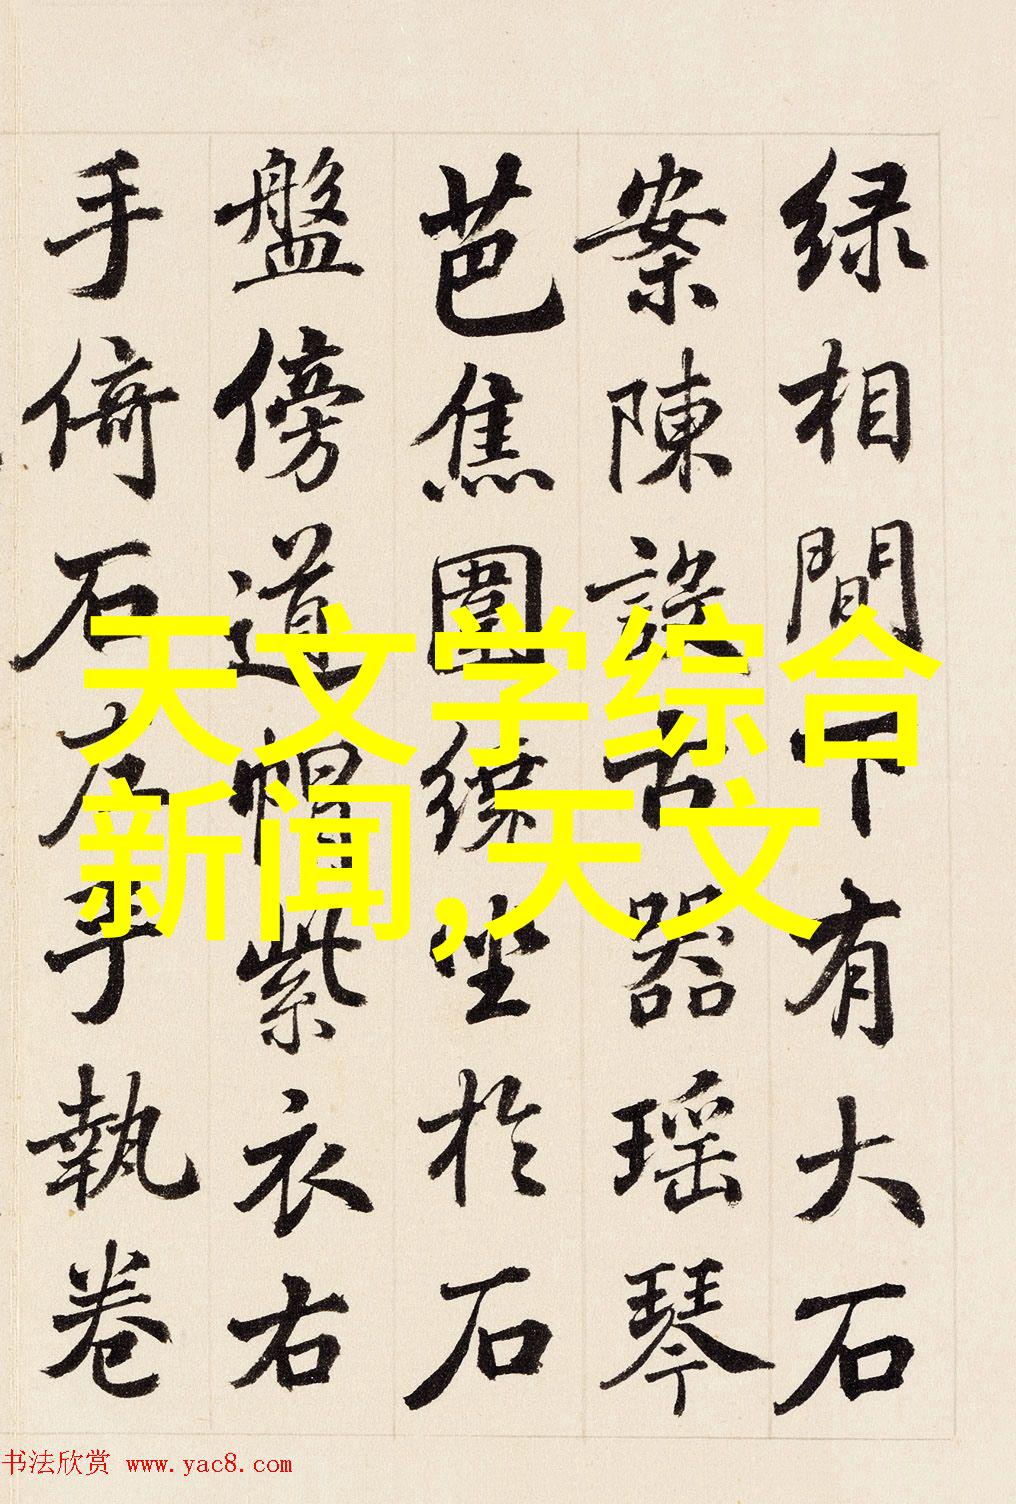 緑相間下有大石
案陳設古器瑶琴
芭焦圍繞坐於石
盤傍道帽紫衣右
手倚石左手執卷
天文学综合
新闻,天文
书法欣赏 www.yac8.com